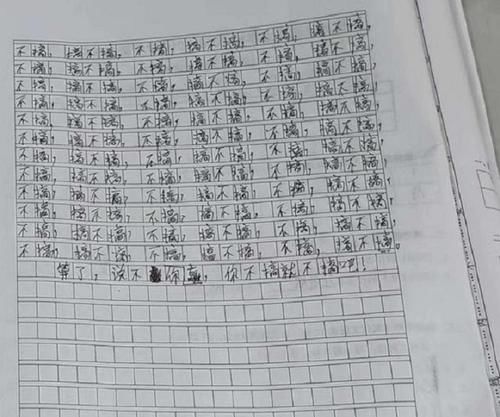 不搞，搞不搞，不搞，搞不搞，不搞，搞不搞
不搞，搞不搞，不搞，搞不搞，不搞，搞不搞，
不搞，搞不搞，不搞，搞不搞，不搞，搞不搞，
不搞，搞不搞，不搞，搞不搞，不搞，搞不搞，
不搞，搞不搞，不搞，搞不搞，不搞，搞不搞，
不搞，搞不搞，不搞，搞不搞，不搞，搞不搞，
不搞，搞不搞，不搞，搞不搞，不搞，搞不搞，
不搞，搞不搞，不搞，搞不搞，不搞，搞不搞，
不搞，搞不搞，不搞，搞不搞，不搞，搞不搞，
不搞，搞不搞，不搞，搞不搞，不搞，搞不搞，
不搞，搞不搞，不搞，搞不搞，不搞，搞不搞，
不搞，搞不搞，不搞，搞不搞，不搞，搞不搞。
算了，说不你，你不搞就不搞吧！